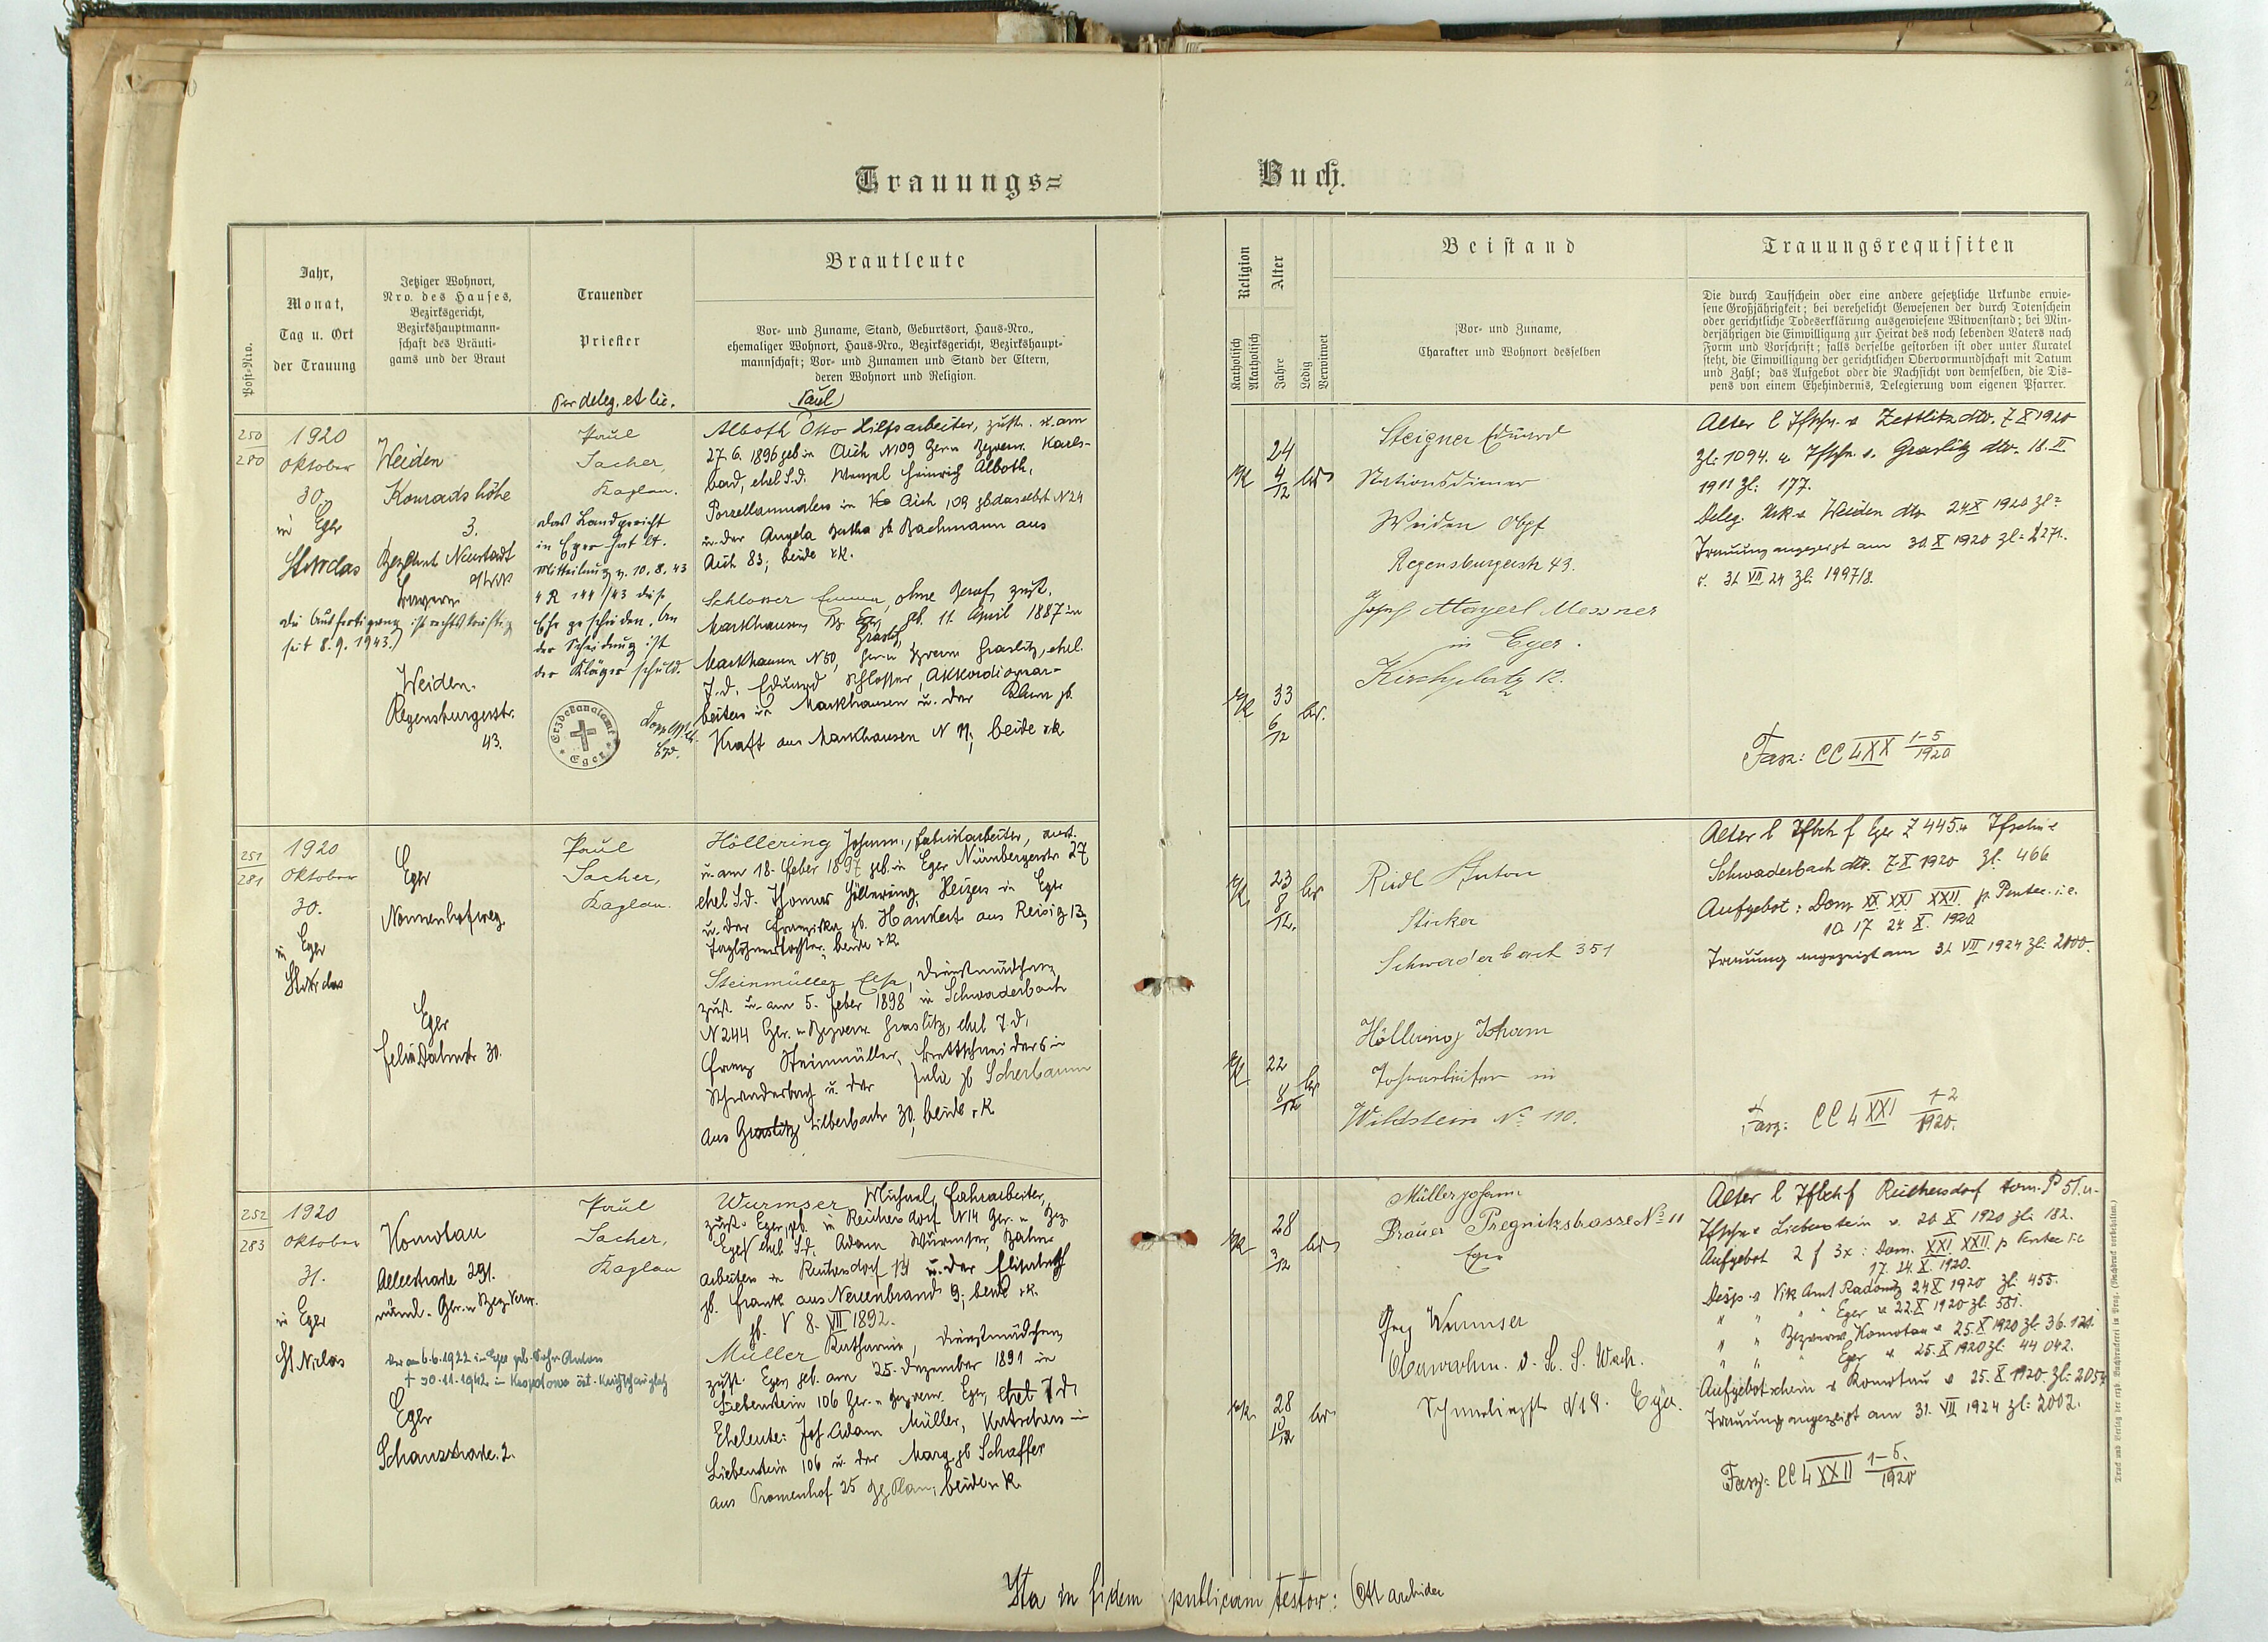 Trauungs=
Buch.
Post-Nro.
Jahr,
Monat,
Tag u. Ort
der Trauung
Jetziger Wohnort,
Nro. des Hauses,
Bezirksgericht,
Bezirkshauptmann-
schaft des Bräuti-
gams und der Braut
Trauender
Priester
Per deleg. et lic.
Brautleute
Vor- und Zuname, Stand, Geburtsort, Haus-Nro.,
ehemaliger Wohnort, Haus-Nro., Bezirksgericht, Bezirkshaupt-
mannschaft; Vor- und Zunamen und Stand der Eltern,
deren Wohnort und Religion.
Religion
Katholisch
Akatholisch
Alter
Jahre
Ledig
Verwitwet
Beistand
Vor- und Zuname,
Charakter und Wohnort desselben
Trauungsrequisiten
Die durch Taufschein oder eine andere gesetzliche Urkunde erwie-
sene Großjährigkeit; bei verehelicht Gewesenen der durch Totenschein
oder gerichtliche Todeserklärung ausgewiesene Witwenstand; bei Min-
derjährigen die Einwilligung zur Heirat des noch lebenden Vaters nach
Form und Vorschrift; falls derselbe gestorben ist oder unter Kuratel
steht, die Einwilligung der gerichtlichen Obervormundschaft mit Datum
und Zahl; das Aufgebot oder die Nachsicht von demselben, die Dis-
pens von einem Ehehindernis, Delegierung vom eigenen Pfarrer.
250
280
1920
Oktober
30.
in Eger
St. Niclas
die Ausfertigung ist rechtskräftig
seit 8.9.1943.
Weiden
Konradshöhe
3.
Bez. Amt Neustadt
Bayern
Weiden.
Regensburgerstr.
43.
Paul
Sacher,
Kaplan.
Das Landgericht
in Eger hat lt.
Mitteilung v. 10.8.43
4 R 144/43 diese
Ehe geschieden. An
der Scheidung ist
der Kläger schuld.
Erzdekanalamt
Eger
Paul
Alboth Otto Hilfsarbeiter, zust. u. am
27.6.1896 geb in Aich N109 Ger u Bzverw. Karls-
bad, ehel S.d. Wenzel Heinrich Alboth,
Porzellanmalers in Aich 109 gb daselbst N24
u. der Angela Bertha gb Bachmann aus
Aich 83; beide rk.
Schlosser Emma, ohne Beruf, zust.
Markhausen, Bz Graslitz, gb. 11. April 1887 in
Markhausen N50, Ger u Bzverw Graslitz, ehel.
T.d. Eduard Schlosser, Akkordionar-
beiters in Markhausen u. der gb.
Kraft aus Markhausen N 11; beide rk
24
4/12
33
6/12
Steigner Eduard
Stationsdiener
Weiden Obpf
Regensburgerstr 43.
Josef Mayerl Messner
in Eger.
Kirchplatz 12.
Alter l Tfschn. v Zettlitz dto. 7 X 1920
Zl. 1094. u Tfschn. v. Graslitz dto. 18. II.
1911 Zl: 177.
Deleg. Urk v Weiden dto 24 X 1920 Zl
Trauung angezeigt am 30. X 1920 Zl: 1271.
v. 31 VII 24 Zl. 1997/8.
Fasz: CC 4 XX 1-5/1920
251
281
1920
Oktober
30.
in Eger
St. Niclas
Eger
Nonnenhofweg.
Eger
Felix Dahnstr 30.
Paul
Sacher,
Kaplan.
Höllering Johann, Fabriksarbeiter, zust.
u. am 18. Feber 1897 geb. in Eger Nürnbergerstr. 27
ehel S.d. Thomas Höllering, Heizers in Eger
u. der Franziska gb. Hankert aus Reisig 13,
Taglöhnerstochter, beide rk
Steinmüller Elsa, Dienstmädchen,
zust u. am 5. Feber 1898 in Schwaderbach
N244 Ger. u Bezverw. Graslitz, ehel T.d.
Franz Steinmüller, Brettschneiders in
Schwaderbach u. der Julie gb Scherbaum
aus Graslitz Silberbach 30, beide rk
23
8/12.
22
8/12
Riedl Anton
Sticker
Schwaderbach 351
Höllering Johann
Bahnarbeiter in
Wildstein No 110.
Alter l Tfbch f Eger Z 445 u Tfschn v
Schwaderbach dto. 7. X 1920 Zl: 466
Aufgebot: Dom XX XXI XXII p. Pentec. i.e.
10. 17. 24. X. 1920
Trauung angezeigt am 31 VII 1924 Zl: 2000.
Fasz: CC 4 XXI 1-2/1920.
252
283
1920
Oktober
31.
in Eger
St. Niclas
Komotau
Alleestrasse 291.
Ger. u Bez. Verw.
Der am 6.6.1922 in Eger geb. Sohn Anton
† 30.11.1942
Eger
Schanzstrasse 2.
Paul
Sacher,
Kaplan
Wurmser Michael, Bahnarbeiter,
zust. Eger, geb. in Reichersdorf N14 Ger. u. Bez
Eger ehel S.d. Adam Wurmser, Bahn-
arbeiters in Reichersdorf 14 u. der Elisabeth
gb. Frank aus Neuenbrand 9; beide rk.
gb. 8. VII 1892.
Müller Katharina, Dienstmädchen,
zust. Eger, geb. am 25. Dezember 1891 in
Liebenstein 106 Ger. u Bezverw. Eger, ehel T.d.
Eheleute: Jos. Adam Müller, Kutschers in
Liebenstein 106 u. der Marg. gb Schaffer
aus Promenhof 25 Bz. Plan; beide rk.
28
3/12
28
10/12
Müller Johann
Brauer Pregnitzstrasse No 11
Eger
Georg Wurmser
Schmerlingstr N18. Eger.
Alter l Tfbch f Reichersdorf tom. P 51. u
Tfschn v Liebenstein v. 20 X 1920 Zl: 182.
Aufgebot 2 f 3x: Dom. XXI. XXII. p Pentec i.e
17. 24. X. 1920.
Disp. v Vik Amt Radonitz 24 X 1920 Zl. 455.
" " " Eger v 22. X 1920 Zl. 581.
" " Bezverw. Komotau v 25. X 1920 Zl. 36.121
" " " Eger v. 25. X 1920 Zl: 44 042.
Aufgebotschein v Komotau v 25. X 1920. Zl: 2054
Trauung angezeigt am 31. VII 1924 Zl: 2002.
Fasz: CC 4 XXII 1-5./1920
Ita in fidem publicam testor: Ott archidec
Druck und Verlag der erzb. Buchdruckerei in Prag. (Nachdruck vorbehalten.)